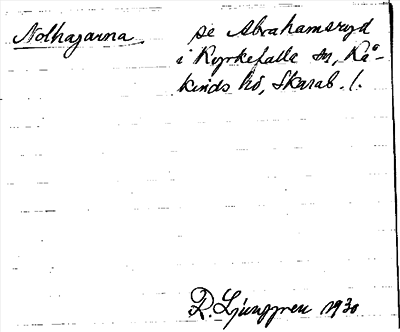 Nolhagarna se Abrahamsryd
i Kyrkefalla sn, Kå-
kinds hd, Skarab. l.
R. Ljunggren 1930